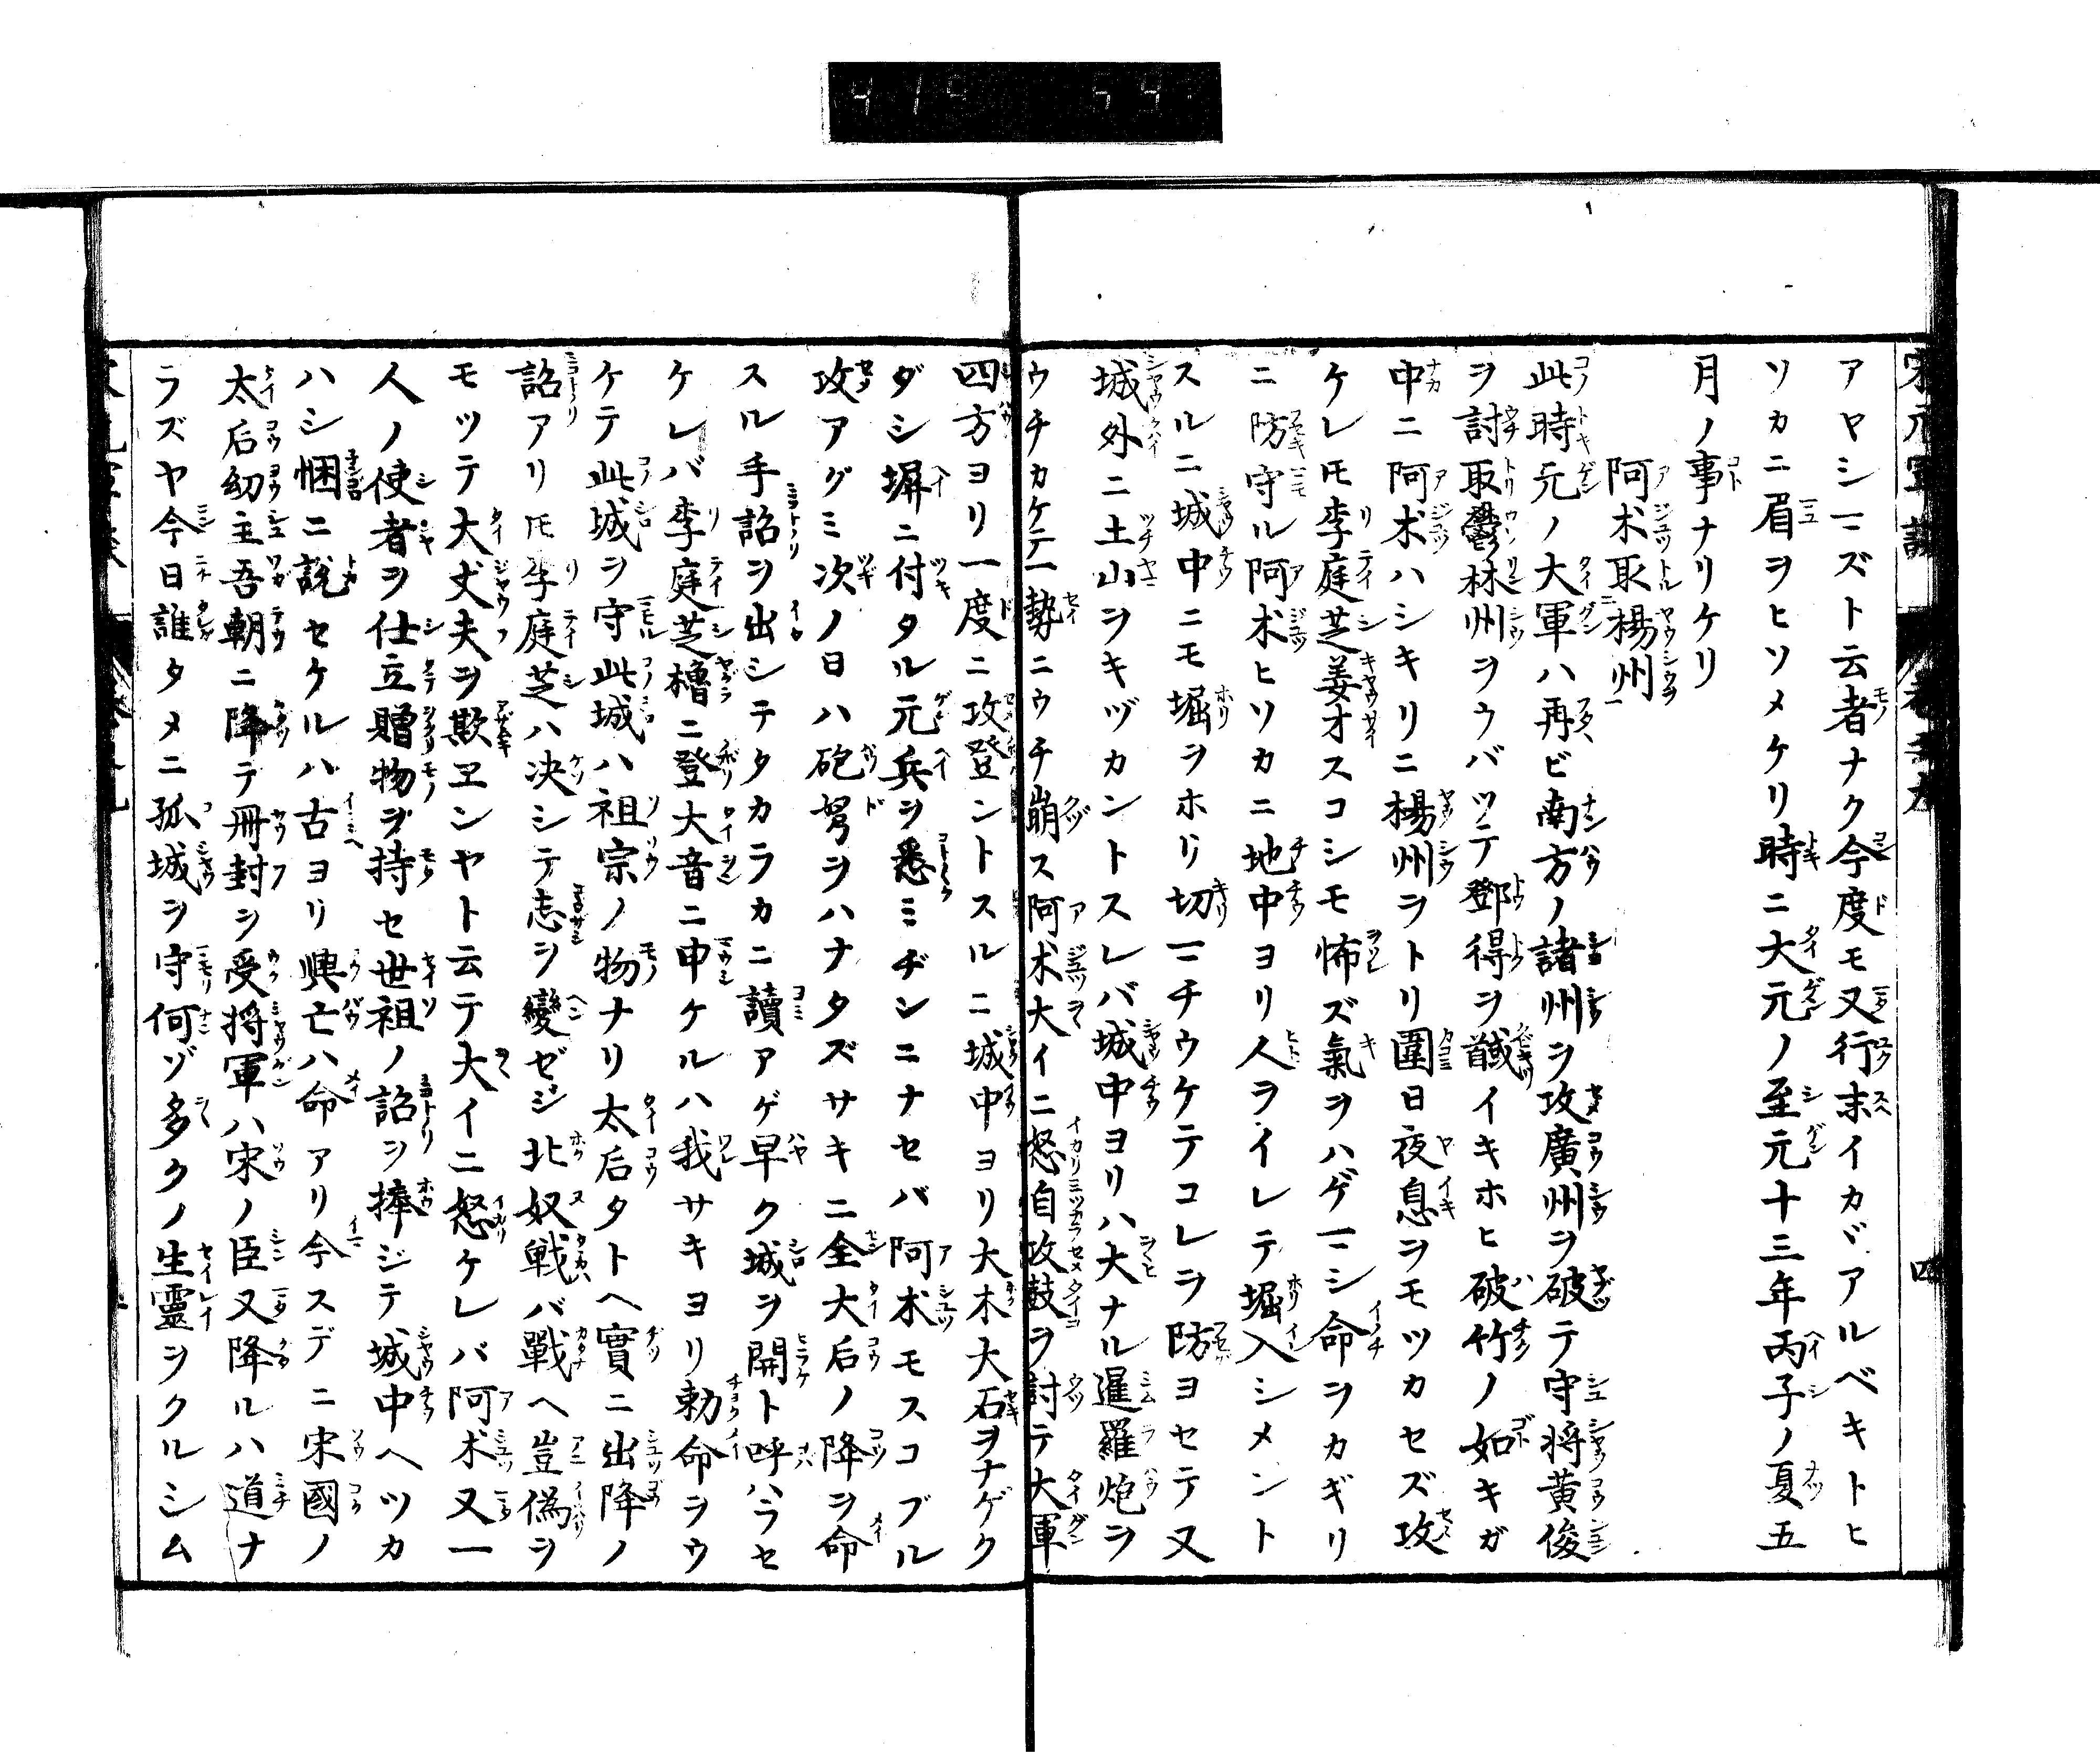 アヤシマズト云者ナク今度モ又行末イカヾアルベキトヒ
ソカニ眉ヲヒソメケリ時ニ大元ノ至元十三年丙子ノ夏五
月ノ事ナリケリ
阿朮取楊州
此時元ノ大軍ハ再ビ南方ノ諸州ヲ攻廣州ヲ破テ守将黄俊
ヲ討取鬱林州ヲウバツテ鄧得ヲ馘イキホヒ破竹ノ如キガ
中ニ阿朮ハシキリニ楊州ヲトリ圍日夜息ヲモツカセズ攻
ケレ𪜈李庭芝姜才スコシモ怖ズ氣ヲハゲマシ命ヲカギリ
ニ防守ル阿朮ヒソカニ地中ヨリ人ヲイレテ堀入シメント
スルニ城中ニモ堀ヲホリ切マチウケテコレヲ防ヨセテ又
城外ニ土山ヲキヅカントスレバ城中ヨリハ大ナル暹羅炮ヲ
ウチカケテ一勢ニウチ崩ス阿朮大イニ怒自攻鼓ヲ討テ大軍
四方ヨリ一度ニ攻登ントスルニ城中ヨリ大木大石ヲナゲク
ダシ塀ニ付タル元兵ヲ悉ミヂンニナセバ阿朮モスコブル
攻アグミ次ノ日ハ砲弩ヲハナタズサキニ全太后ノ降ヲ命
スル手詔ヲ出シテタカラカニ讀アゲ早ク城ヲ開ト呼ハラセ
ケレバ李庭芝櫓ニ登大音ニ申ケルハ我サキヨリ勅命ヲウ
ケテ此城ヲ守此城ハ祖宗ノ物ナリ太后タトヘ實ニ出降ノ
詔アリ𪜈李庭芝ハ决シテ志ヲ變ゼジ北奴戦バ戰ヘ豈偽ヲ
モツテ大丈夫ヲ欺ヱンヤト云テ大イニ怒ケレバ阿朮又一
人ノ使者ヲ仕立贈物ヲ持セ世祖ノ詔ヲ捧ジテ城中ヘツカ
ハシ悃ニ說セケルハ古ヨリ興亡ハ命アリ今スデニ宋國ノ
太后幼主吾朝ニ降テ冊封ヲ受将軍ハ宋ノ臣又降ルハ道ナ
ラズヤ今日誰タメニ孤城ヲ守何ゾ多クノ生靈ヲクルシム